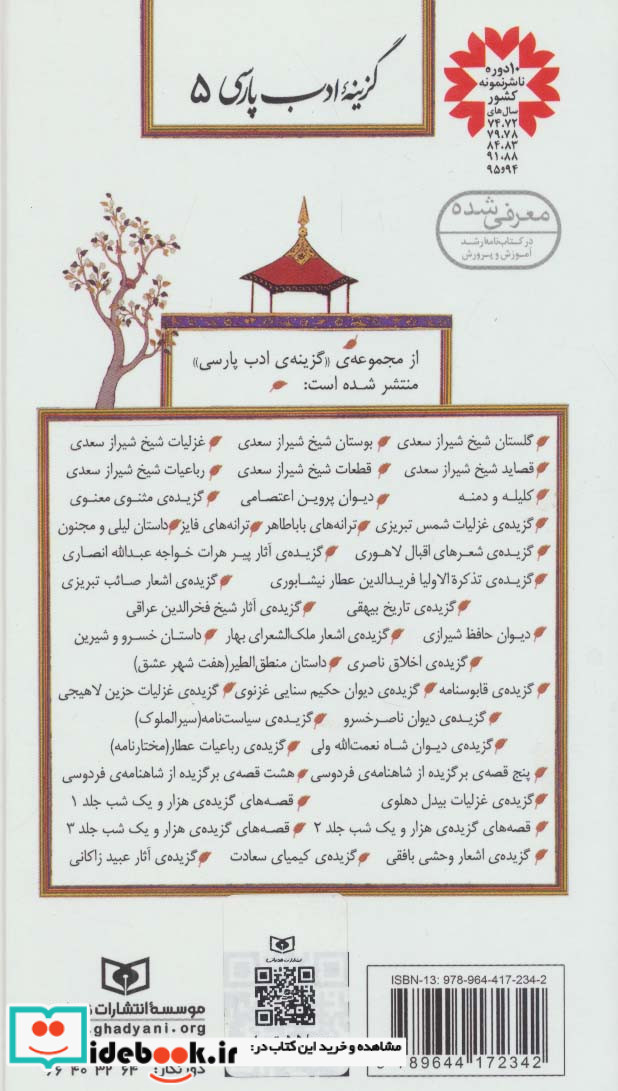 گزینهٔ ادب پارسی ۵
۱۰ دوره
ناشر نمونه
کشور
سال‌های
۷۴،۷۲
۷۹،۷۸
۸۴،۸۳
۹۱،۸۸
۹۴و۹۵
معرفی شده
در کتاب‌نامه رشد
آموزش و پرورش
از مجموعه‌ی «گزینه‌ی ادب پارسی»
منتشر شده است:
گلستان شیخ شیراز سعدی بوستان شیخ شیراز سعدی غزلیات شیخ شیراز سعدی
قصاید شیخ شیراز سعدی قطعات شیخ شیراز سعدی رباعیات شیخ شیراز سعدی
کلیله و دمنه دیوان پروین اعتصامی گزیده‌ی مثنوی معنوی
گزیده‌ی غزلیات شمس تبریزی ترانه‌های باباطاهر ترانه‌های فایز داستان لیلی و مجنون
گزیده‌ی شعرهای اقبال لاهوری گزیده‌ی آثار پیر هرات خواجه عبدالله انصاری
گزیده‌ی تذکرة الاولیا فریدالدین عطار نیشابوری گزیده‌ی اشعار صائب تبریزی
گزیده‌ی تاریخ بیهقی گزیده‌ی آثار شیخ فخرالدین عراقی
دیوان حافظ شیرازی گزیده‌ی اشعار ملک‌الشعرای بهار داستان خسرو و شیرین
گزیده‌ی اخلاق ناصری داستان منطق‌الطیر(هفت شهر عشق)
گزیده‌ی قابوسنامه گزیده‌ی دیوان حکیم سنایی غزنوی گزیده‌ی غزلیات حزین لاهیجی
گزیده‌ی دیوان ناصرخسرو گزیده‌ی سیاست‌نامه(سیرالملوک)
گزیده‌ی دیوان شاه نعمت‌الله ولی گزیده‌ی رباعیات عطار(مختارنامه)
پنج قصه‌ی برگزیده از شاهنامه‌ی فردوسی هشت قصه‌ی برگزیده از شاهنامه‌ی فردوسی
گزیده‌ی غزلیات بیدل دهلوی قصه‌های گزیده‌ی هزار و یک شب جلد ۱
قصه‌های گزیده‌ی هزار و یک شب جلد ۲ قصه‌های گزیده‌ی هزار و یک شب جلد ۳
گزیده‌ی اشعار وحشی بافقی گزیده‌ی کیمیای سعادت گزیده‌ی آثار عبید زاکانی
ISBN-13: 978-964-417-234-2
9 789644 172342
موسسهٔ انتشارات
.ghadyani.org
دورنگار: ۶۶ ۴۰ ۳۲ ۶۴
مشاهده و خرید این کتاب در:
idebook.ir